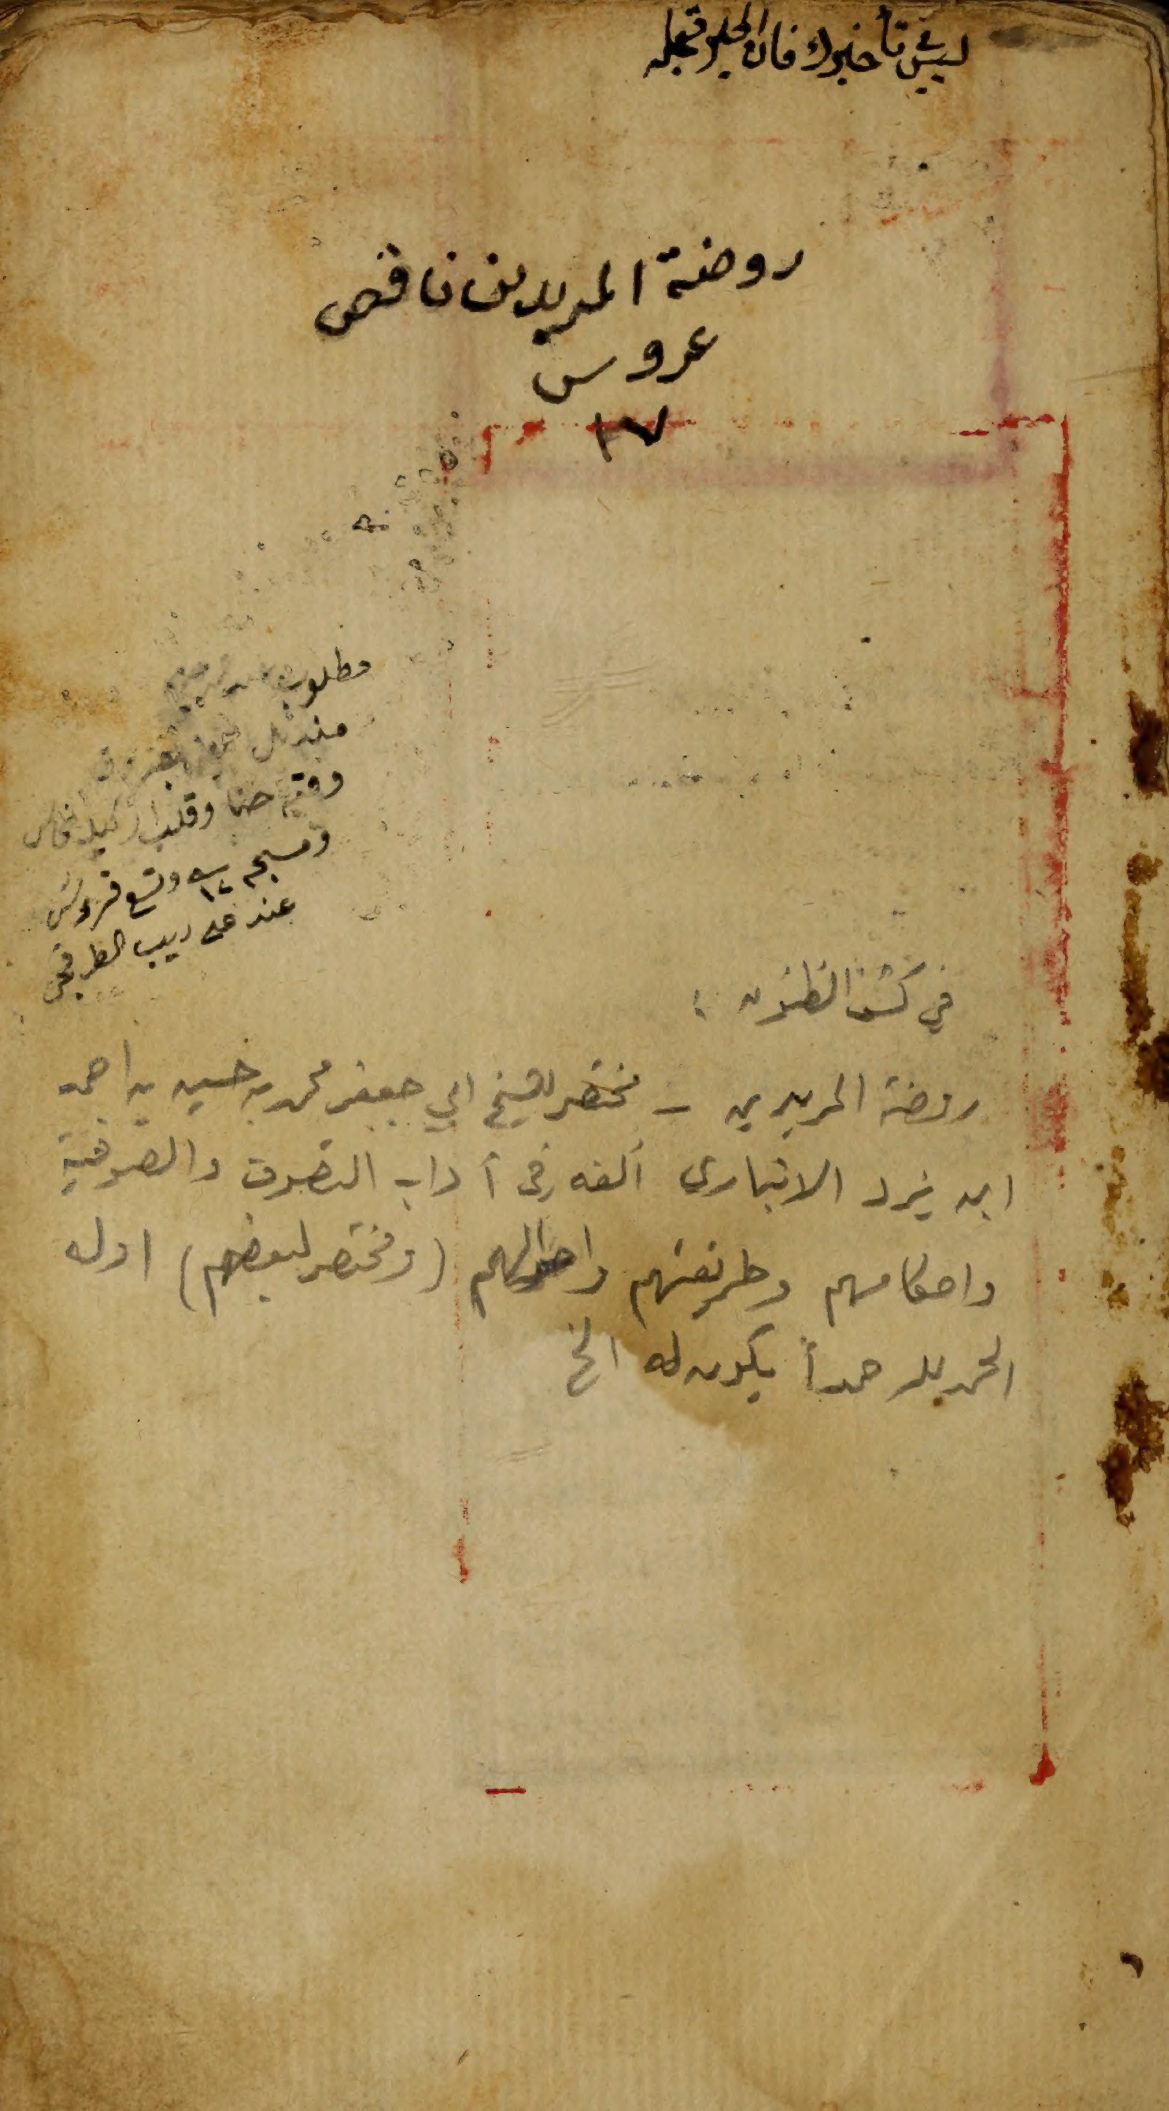 ليس في تأخيرك فان الخير
روضة المريدين ناقص
عروس
١٧
مطلوب
منديل
ووقية حنا وقلب
ومسبحه وتسع قروش
عند علي ديب
في كشف الظنون :
روضة المريدين - مختصر للشيخ ابي جعفر محمد بن حسين بن احمد
ابن يزد الانباري ألفه في آداب التصوف والصوفية
واحكامهم وطريقتهم واحوالهم (ومختصر لبعضهم) اوله
الحمد لله حمداً يكون له الخ